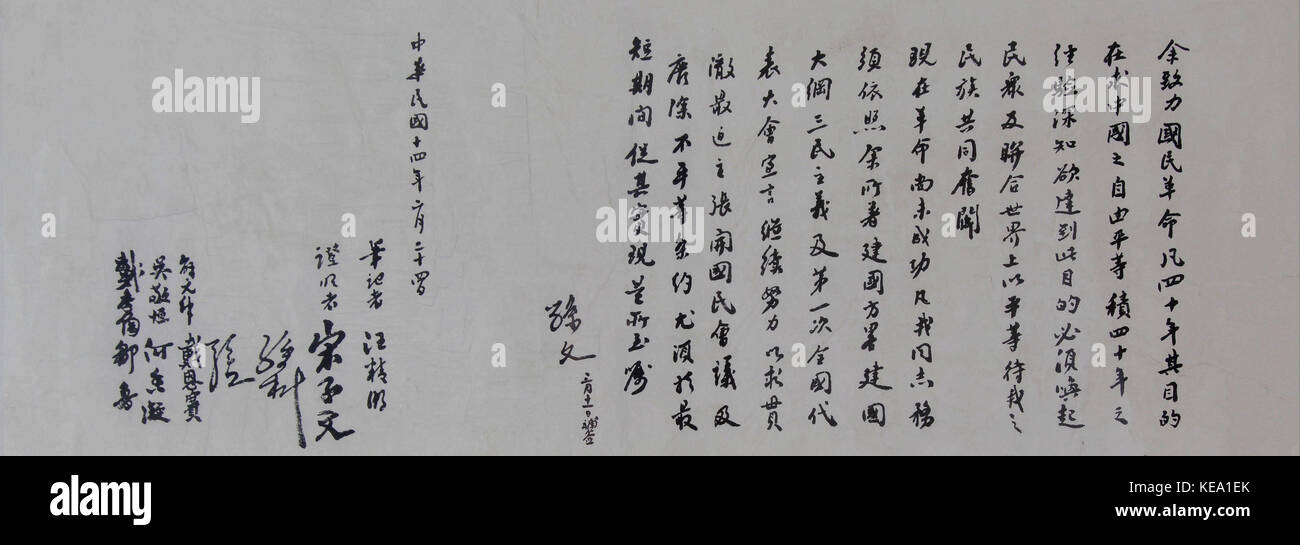 余致力國民革命凡四十年其目的
在求中國之自由平等積四十年之
經驗深知欲達到此目的必須喚起
民眾及聯合世界上以平等待我之
民族共同奮鬬
現在革命尚未成功凡我同志務
須依照余所著建國方畧建國
大綱三民主義及第一次全國代
表大會宣言繼續努力以求貫
澈最近主張開國民會議及
廢除不平等條約尤須於最
短期間促其實現是所至囑
孫文 三月十一日補簽
中華民國十四年二月二十四日
筆記者 汪精衛
證明者 宋子文
孫科
戴恩賽
吳敬恒 何香凝
鄒魯
alamy
Image ID: KEA1EK
www.alamy.com